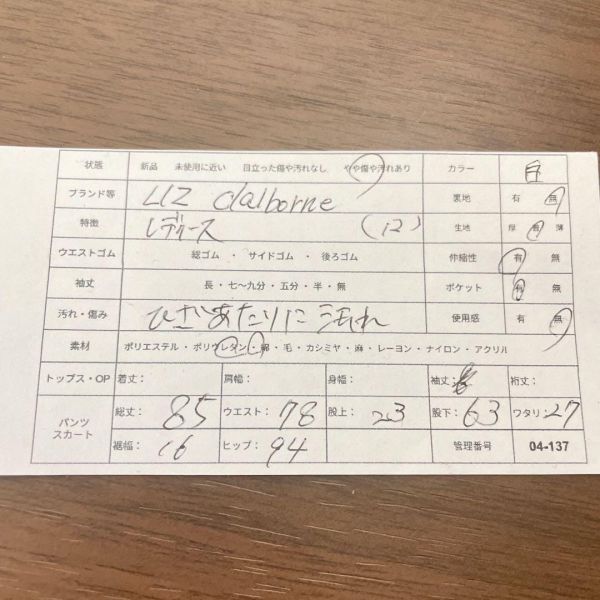 状態 新品 未使用に近い 目立った傷や汚れなし やや傷や汚れあり カラー 白
ブランド等 LIZ claiborne 裏地 有 無
特徴 レディース (12) 生地 厚 普 薄
ウエストゴム 総ゴム ・ サイドゴム ・ 後ろゴム 伸縮性 有 無
袖丈 長 ・ 七〜九分 ・ 五分 ・ 半 ・ 無 ポケット 有 無
汚れ・傷み ひざあたりに汚れ 使用感 有 無
素材 ポリエステル ・ ポリウレタン ・ 綿 ・ 毛 ・ カシミヤ ・ 麻 ・ レーヨン ・ ナイロン ・ アクリル
トップス・OP 着丈： 肩幅： 身幅： 袖丈： 裄丈：
パンツ スカート 総丈： 85 ウエスト： 78 股上： 23 股下： 63 ワタリ： 27
裾幅： 16 ヒップ： 94 管理番号 04-137